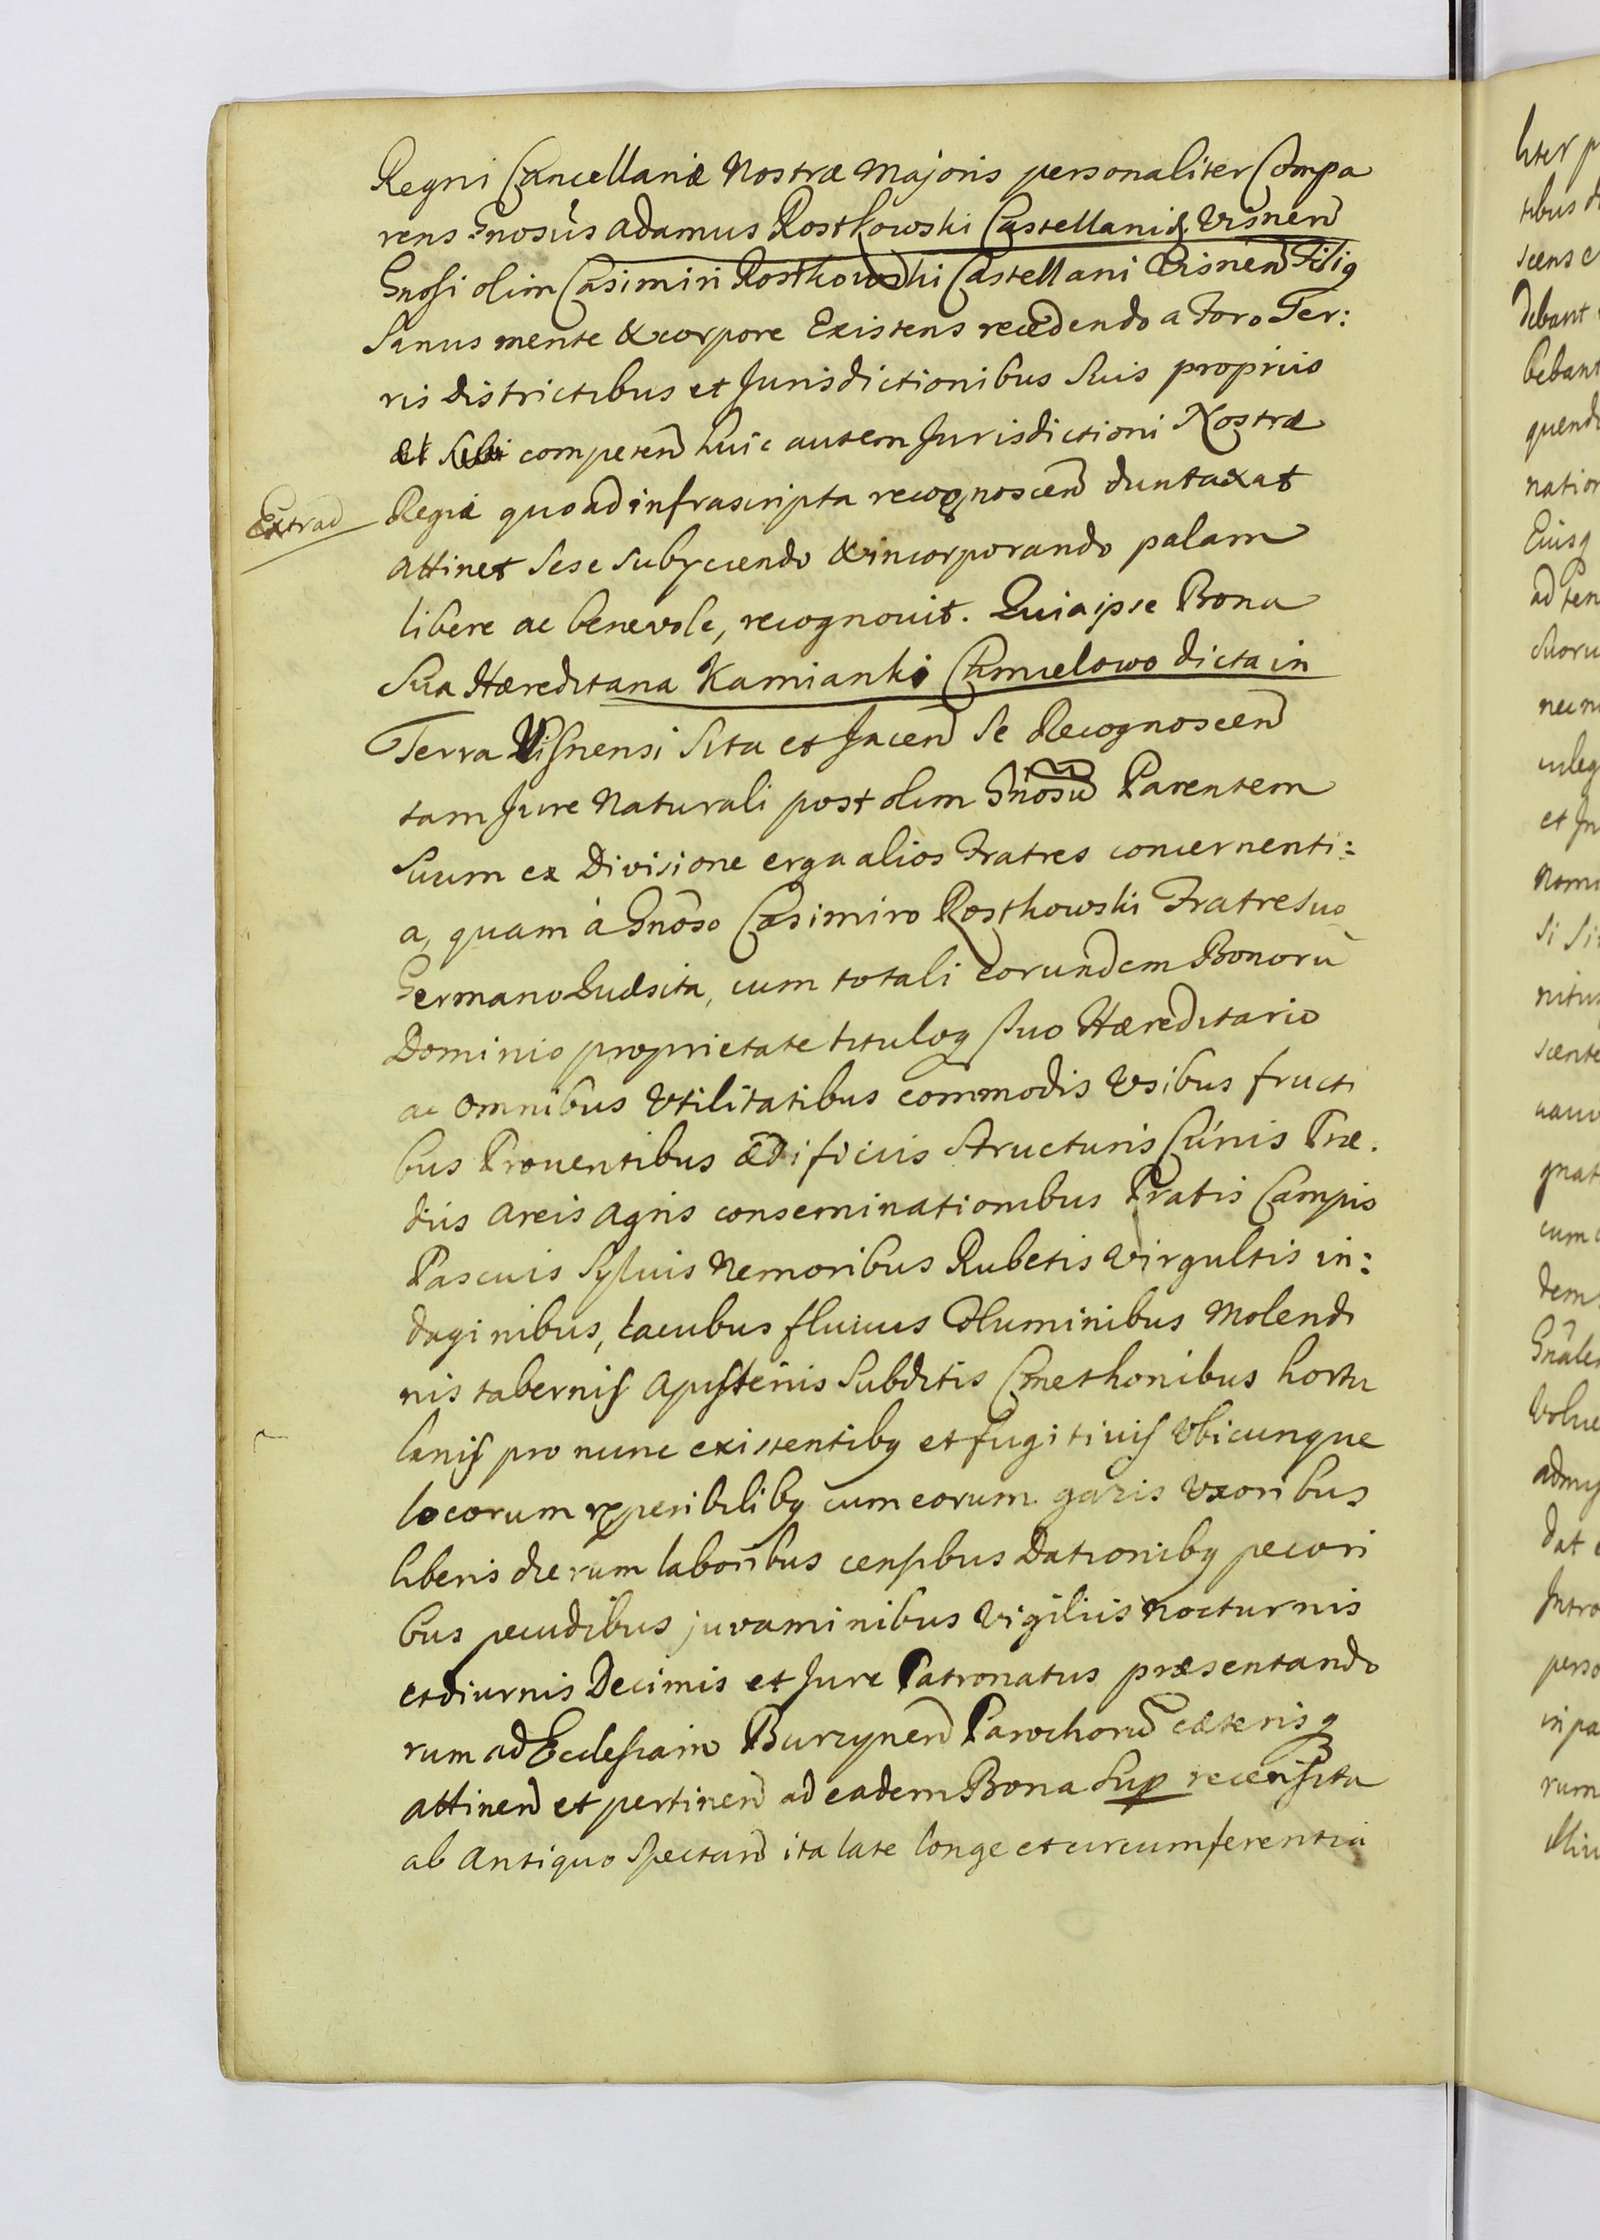 Regni Cancellariæ Nostræ Majoris personaliter Compa
rens Gnosus Adamus Rostkowski Castellanid. Visnen
Gnosi olim Casimiri Rostkowski Castellani Visnen Filiq
Sanus mente & corpore Existens recedendo a Foro Ter:
ris districtibus et Jurisdictionibus Suis propriis
et Sibi competen huic autem Jurisdictioni Nostræ
Extrad
Regiæ quo ad infrascripta recognoscen duntaxat
attinet Sese Subyciendo & incorporando palam
libere ac benevole, recognovit. Quia ipse Bona
Sua Hæreditaria Kamianki Chmielowo dicta in
Terra Visnensi Sita et Jacen Se Recognoscen
tam Jure Naturali post olim Gnosu Parentem
Suum ex Divisione erga alios Fratres concernenti:
a, quam à Gnoso Casimiro Rostkowski Fratre Suo
Germano Quæsita, cum totali eorundem Bonorū
Dominio proprietate tituloq Suo Hæreditario
ac omnibus Utilitatibus commodis Usibus fructi
bus Proventibus ædificiis Structuris Curiis Præ.
diis Areis Agris conseminationibus Pratis Campis
Pascuis Sylvis Nemoribus Rubetis Virgultis in:
daginibus, Lacubus fluviis & fluminibus Molendi
nis tabernis Apisterijs Subditis Cmethonibus hortu
lanis pro nunc existentibq et fugitivis Ubicunque
locorum reperibilibq cum eorum gazis Uxoribus
liberis dierum laboribus censibus Dationibq pecori
bus pecudibus juvaminibus Vigiliis Nocturnis
et diurnis Decimis et Jure Patronatus præsentando
rum ad Ecclesiam Burzynen Parochorū cæterisq
attinen et pertinen ad eadem Bona Sup recensita
ab Antiquo Spectan ita late longe et circumferentia